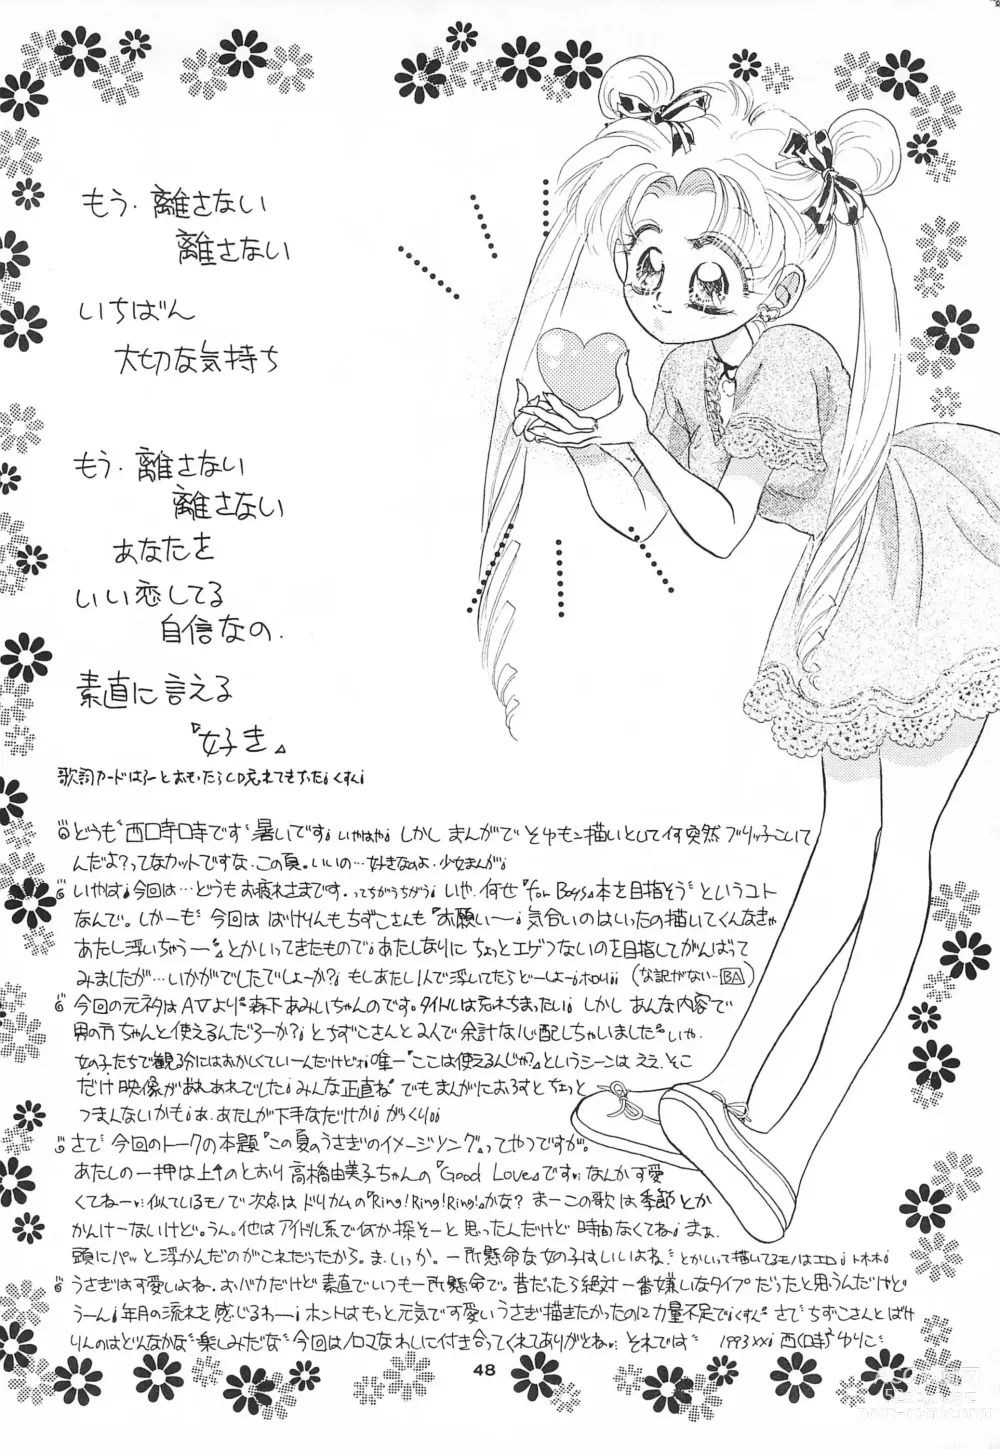 もう・離さない
離さない
いちばん
大切な気持ち
もう・離さない
離さない
あなたを
いい恋してる
自信なの.
素直に言える
『好き』
歌詞カードはろーとおもったらCD忘れてきちった¡くすん¡
どうも 西口寺口寺です 暑いです¡ いやはや¡ しかし まんがで そゆモン描いとして何突然 ブリッ子こいて
んだよ?ってなカットですな.この頁。いいの…好きなのよ.少女まんが¡
いやは¡今回は…どうもお疲れさまです。ってちがうちがう¡ いや.何せ『for Boys』本を目指そう というコト
なんで。しかーも 今回は ばけりんも ちずこさんも『お願い〜¡ 気合いのはいったの描いてくんなきゃ
あたし浮いちゃう〜』とかいってきたもので¡あたしなりに ちょっとエゲツないのを目指してがんばって
みましたが…いかがでしたでしょーか?¡ もしあたし1人で浮いてたらどーしよー¡ホロリ¡¡
今回の元ネタはAVより 森下あみいちゃんのです。タイトルは忘れちまったい¡ しかし あんな内容で
男の方ちゃんと使えるんだろーか?¡ とちずこさんと2人で余計な心配しちゃいました いや.
女の子たちで観る分にはおかしくていーんだけど 唯一 ここは使えるんじゃ?』というシーンは ええ.そこ
だけ 映像があれあれでした¡みんな正直ね でも まんがにおろすと ちょっと
つまんないかも¡あ.あたしが下手なだけか¡ がっくり¡¡
さて 今回のトークの本題『この夏のうさぎのイメージソング』ってやつですが。
あたしの一押は上↑のとおり 高橋由美子ちゃんの『Good Love』です なんか可愛
くてねー 似ているモノで次点は ドリカムの『Ring! Ring! Ring!』かな? まーこの歌は季節とか
かんけーないけど。うん。他はアイドル系で何か探そーと思ったんだけど 時間なくてね¡ まぁ
頭にパッと浮かんだのがこれだったから。ま.いっか。一所懸命な女の子はいいよね とかいって描いてるモノはエロ¡ トホホ¡
うさぎは可愛しよね.おバカだけど素直でいつも一所懸命で。昔だったら絶対一番嫌いなタイプだったと思うんだけど
うーん¡年月の流れを感じるわー¡ホントはもっと元気で可愛いうさぎ描きたかったのに力量不足で¡くすん さて ちずこさんとばけ
りんのはどんなかな 楽しみだな 今回はノロマなわしに付き合ってくれてありがとね それでは 1993xx¡ 西口寺 ゆりこ
48